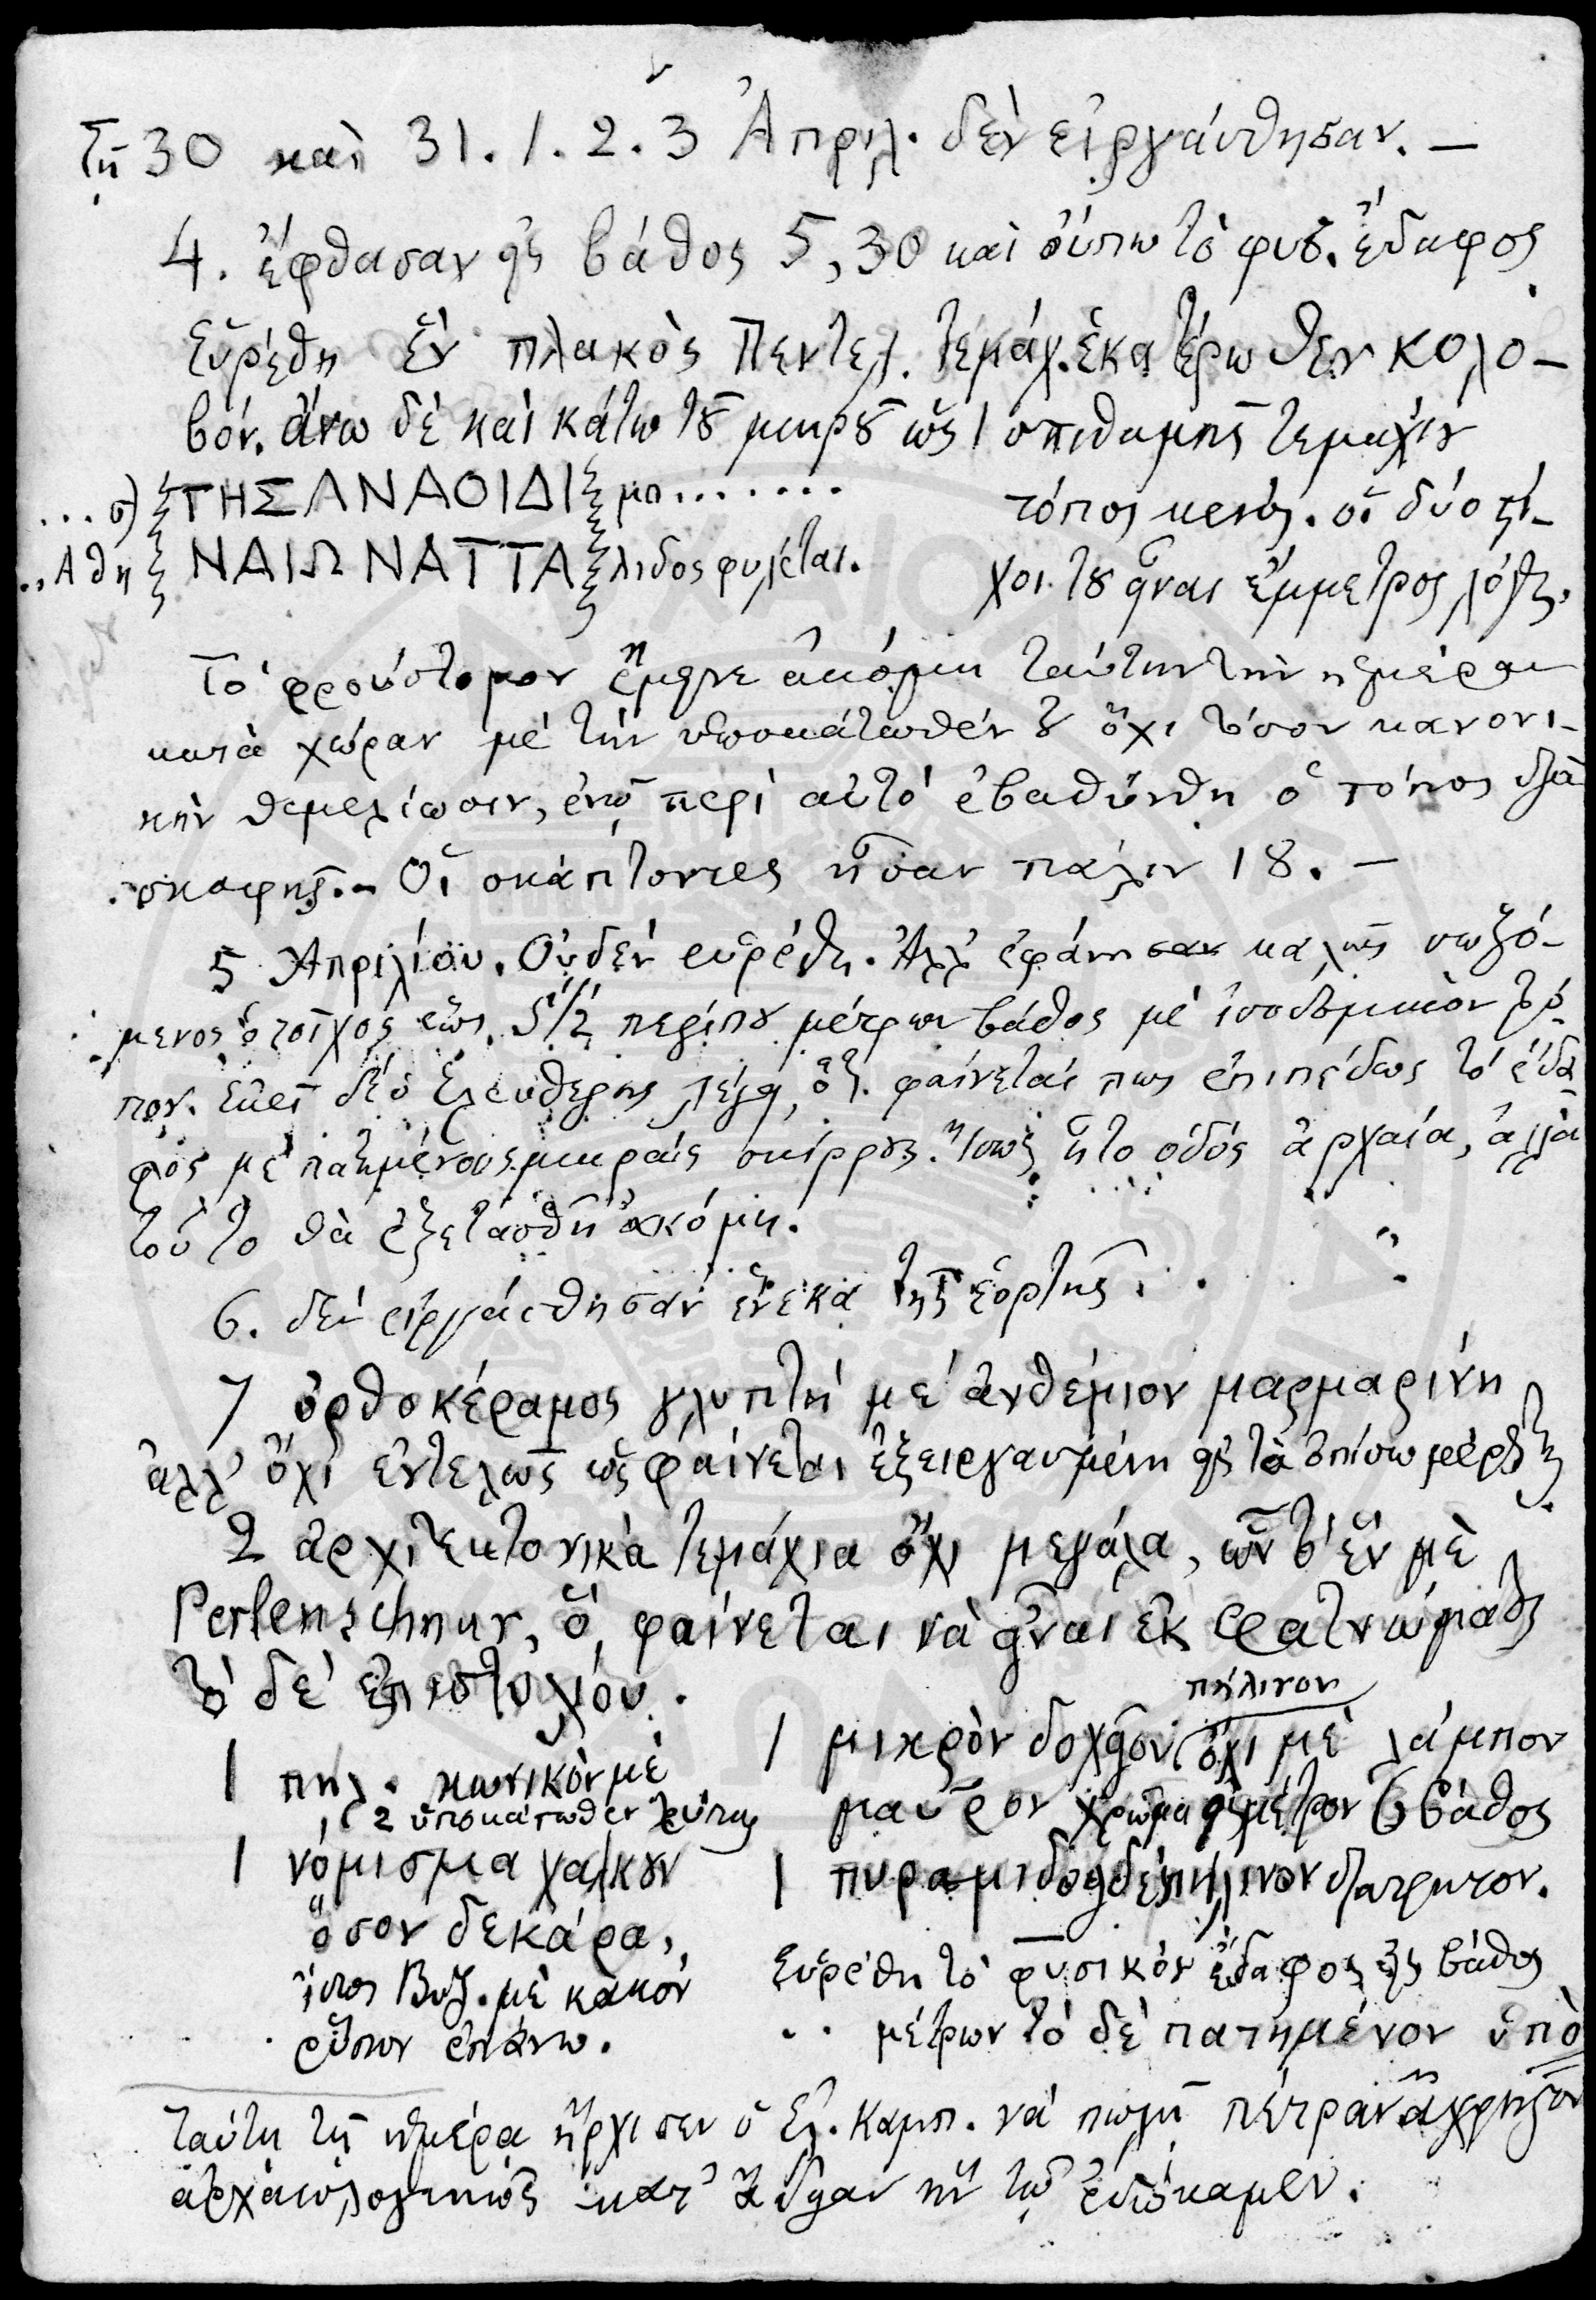 Τῇ 30 καὶ 31. 1. 2. 3 Ἀπριλ. δὲν εἰργάσθησαν. —
4. ἔφθασαν εἰς βάθος 5,30 καὶ οὔπω τὸ φυσ. ἔδαφος.
Εὑρέθη ἓν πλακὸς Πεντελ. τεμάχ. ἑκατέρωθεν κολο-
βόν. ἄνω δὲ καὶ κάτω τοῦ μικροῦ ὡς 1 σπιθαμῆς τεμαχίου
... σ) ΤΗΣΑΝΑΟΙΔΙ μο.......
τόπος κενός. οἱ δύο στί-
.. Αθη ΝΑΙΩΝΑΤΤΑ λιδος φυλέται.
χοι του εἶναι ἔμμετρος λόγος.
Τὸ φρούστομον ἔμεινε ἀκόμη ταύτην τὴν ἡμέραν
κατὰ χώραν μὲ τὴν ὑποκάτωθέν του ὄχι τόσον κανονι-
κὴν θεμελίωσιν, ἐνῷ περὶ αὐτὸ ἐβαθύνθη ὁ τόπος διὰ
σκαφῆς. - Οἱ σκάπτοντες ἦσαν πάλιν 18. —
5 Ἀπριλίου. Οὐδὲν εὑρέθη. Ἀλλ' ἐφάνη καλῶς σωζό-
μενος ὁ τοῖχος ἕως 5 1/2 περίπου μέτρων βάθος μὲ ἰσοδομικὸν τρό-
πον. Ἐκεῖ δὲ ὁ Ἐλευθέρης λέγει ὅτι φαίνεται πως ἐπιπέδως τὸ ἔδα-
φος μὲ πατημένους μικροὺς σκίρρους. Ἴσως ἦτο ὁδὸς ἀρχαία, ἀλλὰ
τοῦτο θὰ ἐξετασθῇ ἀκόμη.
6. δὲν εἰργάσθησαν ἕνεκα τῆς ἑορτῆς.
7 ὀρθοκέραμος γλυπτὴ μὲ ἀνθέμιον μαρμαρίνη
ἀλλ' ὄχι ἐντελῶς ὡς φαίνεται ἐξειργασμένη εἰς τὰ ὀπίσω μέρη της.
2 ἀρχιτεκτονικὰ τεμάχια ὄχι μεγάλα, ὧν τὸ ἓν μὲ
Perlenschnur, ὃ φαίνεται νὰ εἶναι ἐκ φατνώματος
τὸ δὲ ἐπιστυλίου.
1 πηλ. κωνικὸν μὲ
2 ὑποκάτωθεν τρύπας
1 νόμισμα χαλκοῦν
ὅσον δεκάρα,
ἴσως Βυζ. μὲ κακὸν
ρύπον ἐπάνω.
πήλινον
1 μικρὸν δοχεῖον ὄχι μὲ λάμπον
μαῦρον χρῶμα εἰς μέτρον 6 βάθος
1 πυραμιδοειδὲς πήλινον διάτρητον.
Εὑρέθη τὸ φυσικὸν ἔδαφος εἰς βάθος
.. μέτρων τὸ δὲ πατημένον ὑπὸ
ταύτῃ τῇ ἡμέρᾳ ἤρχισεν ὁ Ἐλ. Καμπ. νὰ πωλῇ πέτραν ἄχρηστον
ἀρχαιολογικῶς κατ' ἄδειαν ἣν τῷ ἐδώκαμεν.